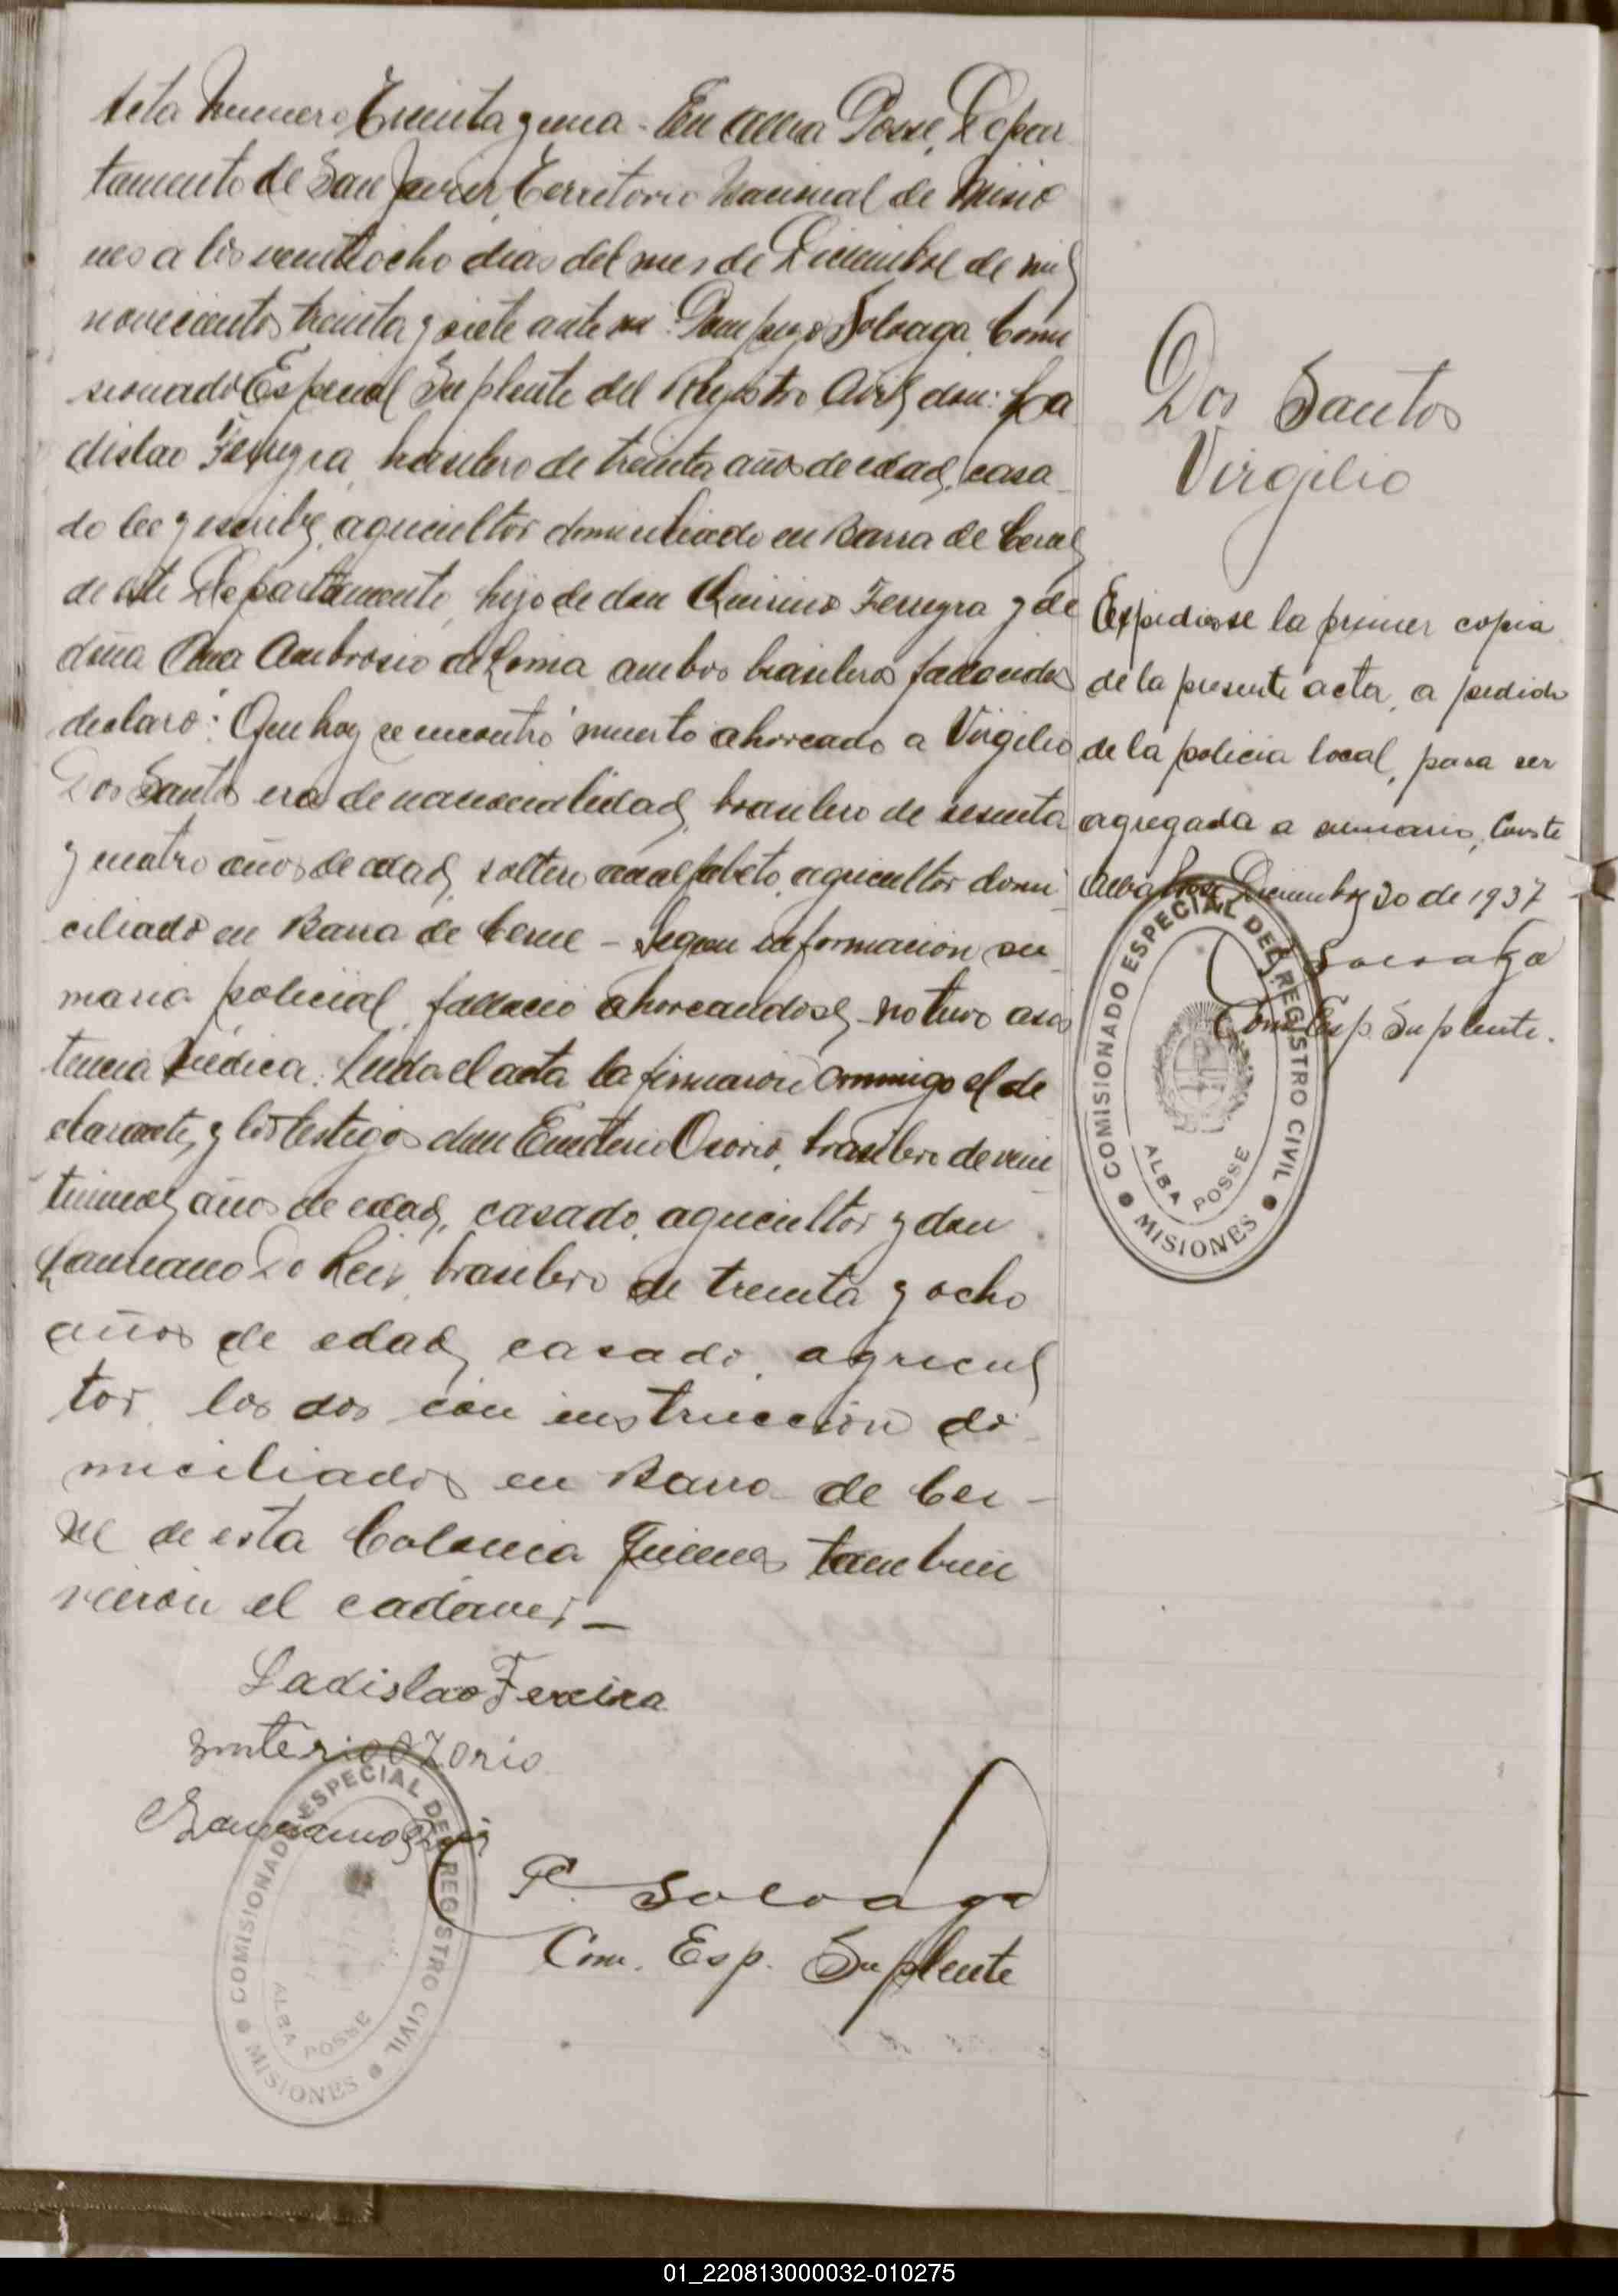 Acta Numero Treinta y una - En Alba Posse, Depar
tamento de San Javier, Territorio Nacional de Misio
nes a los veintiocho dias del mes de Diciembre de mil
novecientos treinta y siete ante mi: Pompeyo Solvaga, Comi
sionado Especial Suplente del Registro Civil, don: La
dislao Ferreyra, brasilero de treinta años de edad, casa
do lee y escribe, agricultor domiciliado en Barra de
de este Departamento, hijo de don Quirino Ferreyra y de
doña Ana Ambrosio de Lima ambos brasileros fallecidos
declaró: Que hoy se encontró muerto ahorcado a Virgilio
Dos Santos era de nacionalidad, brasilero de sesenta
y cuatro años de edad, soltero analfabeto, agricultor domi
ciliado en Barra de - Según información su
maria policial, fallecio ahorcandose, no tuvo asis
tencia médica. Leida el acta la firmaron conmigo el de
clarante, y los testigos don Emeterio Osorio, brasilero de vein
tinueve años de edad, casado, agricultor y don
Laureano Do Reis, brasilero de treinta y ocho
años de edad, casado, agricul
tor, los dos con instrucción do
miciliados en Barra de
de esta Colonia quienes tambien
vieron el cadaver, -
Ladislao Fereira
Emterio Ozorio
Laureano Reis
P. Solvaga
Com. Esp. Suplente
COMISIONADO ESPECIAL DEL REGISTRO CIVIL
ALBA POSSE
MISIONES
Dos Santos
Virgilio
Expidiose la primer copia
de la presente acta, a pedido
de la policia local, para ser
agregada a sumario, Conste
Alba Posse, Diciembre 30 de 1937
Solvaga
Com. Esp. Suplente.
COMISIONADO ESPECIAL DEL REGISTRO CIVIL
ALBA POSSE
MISIONES
01_220813000032-010275